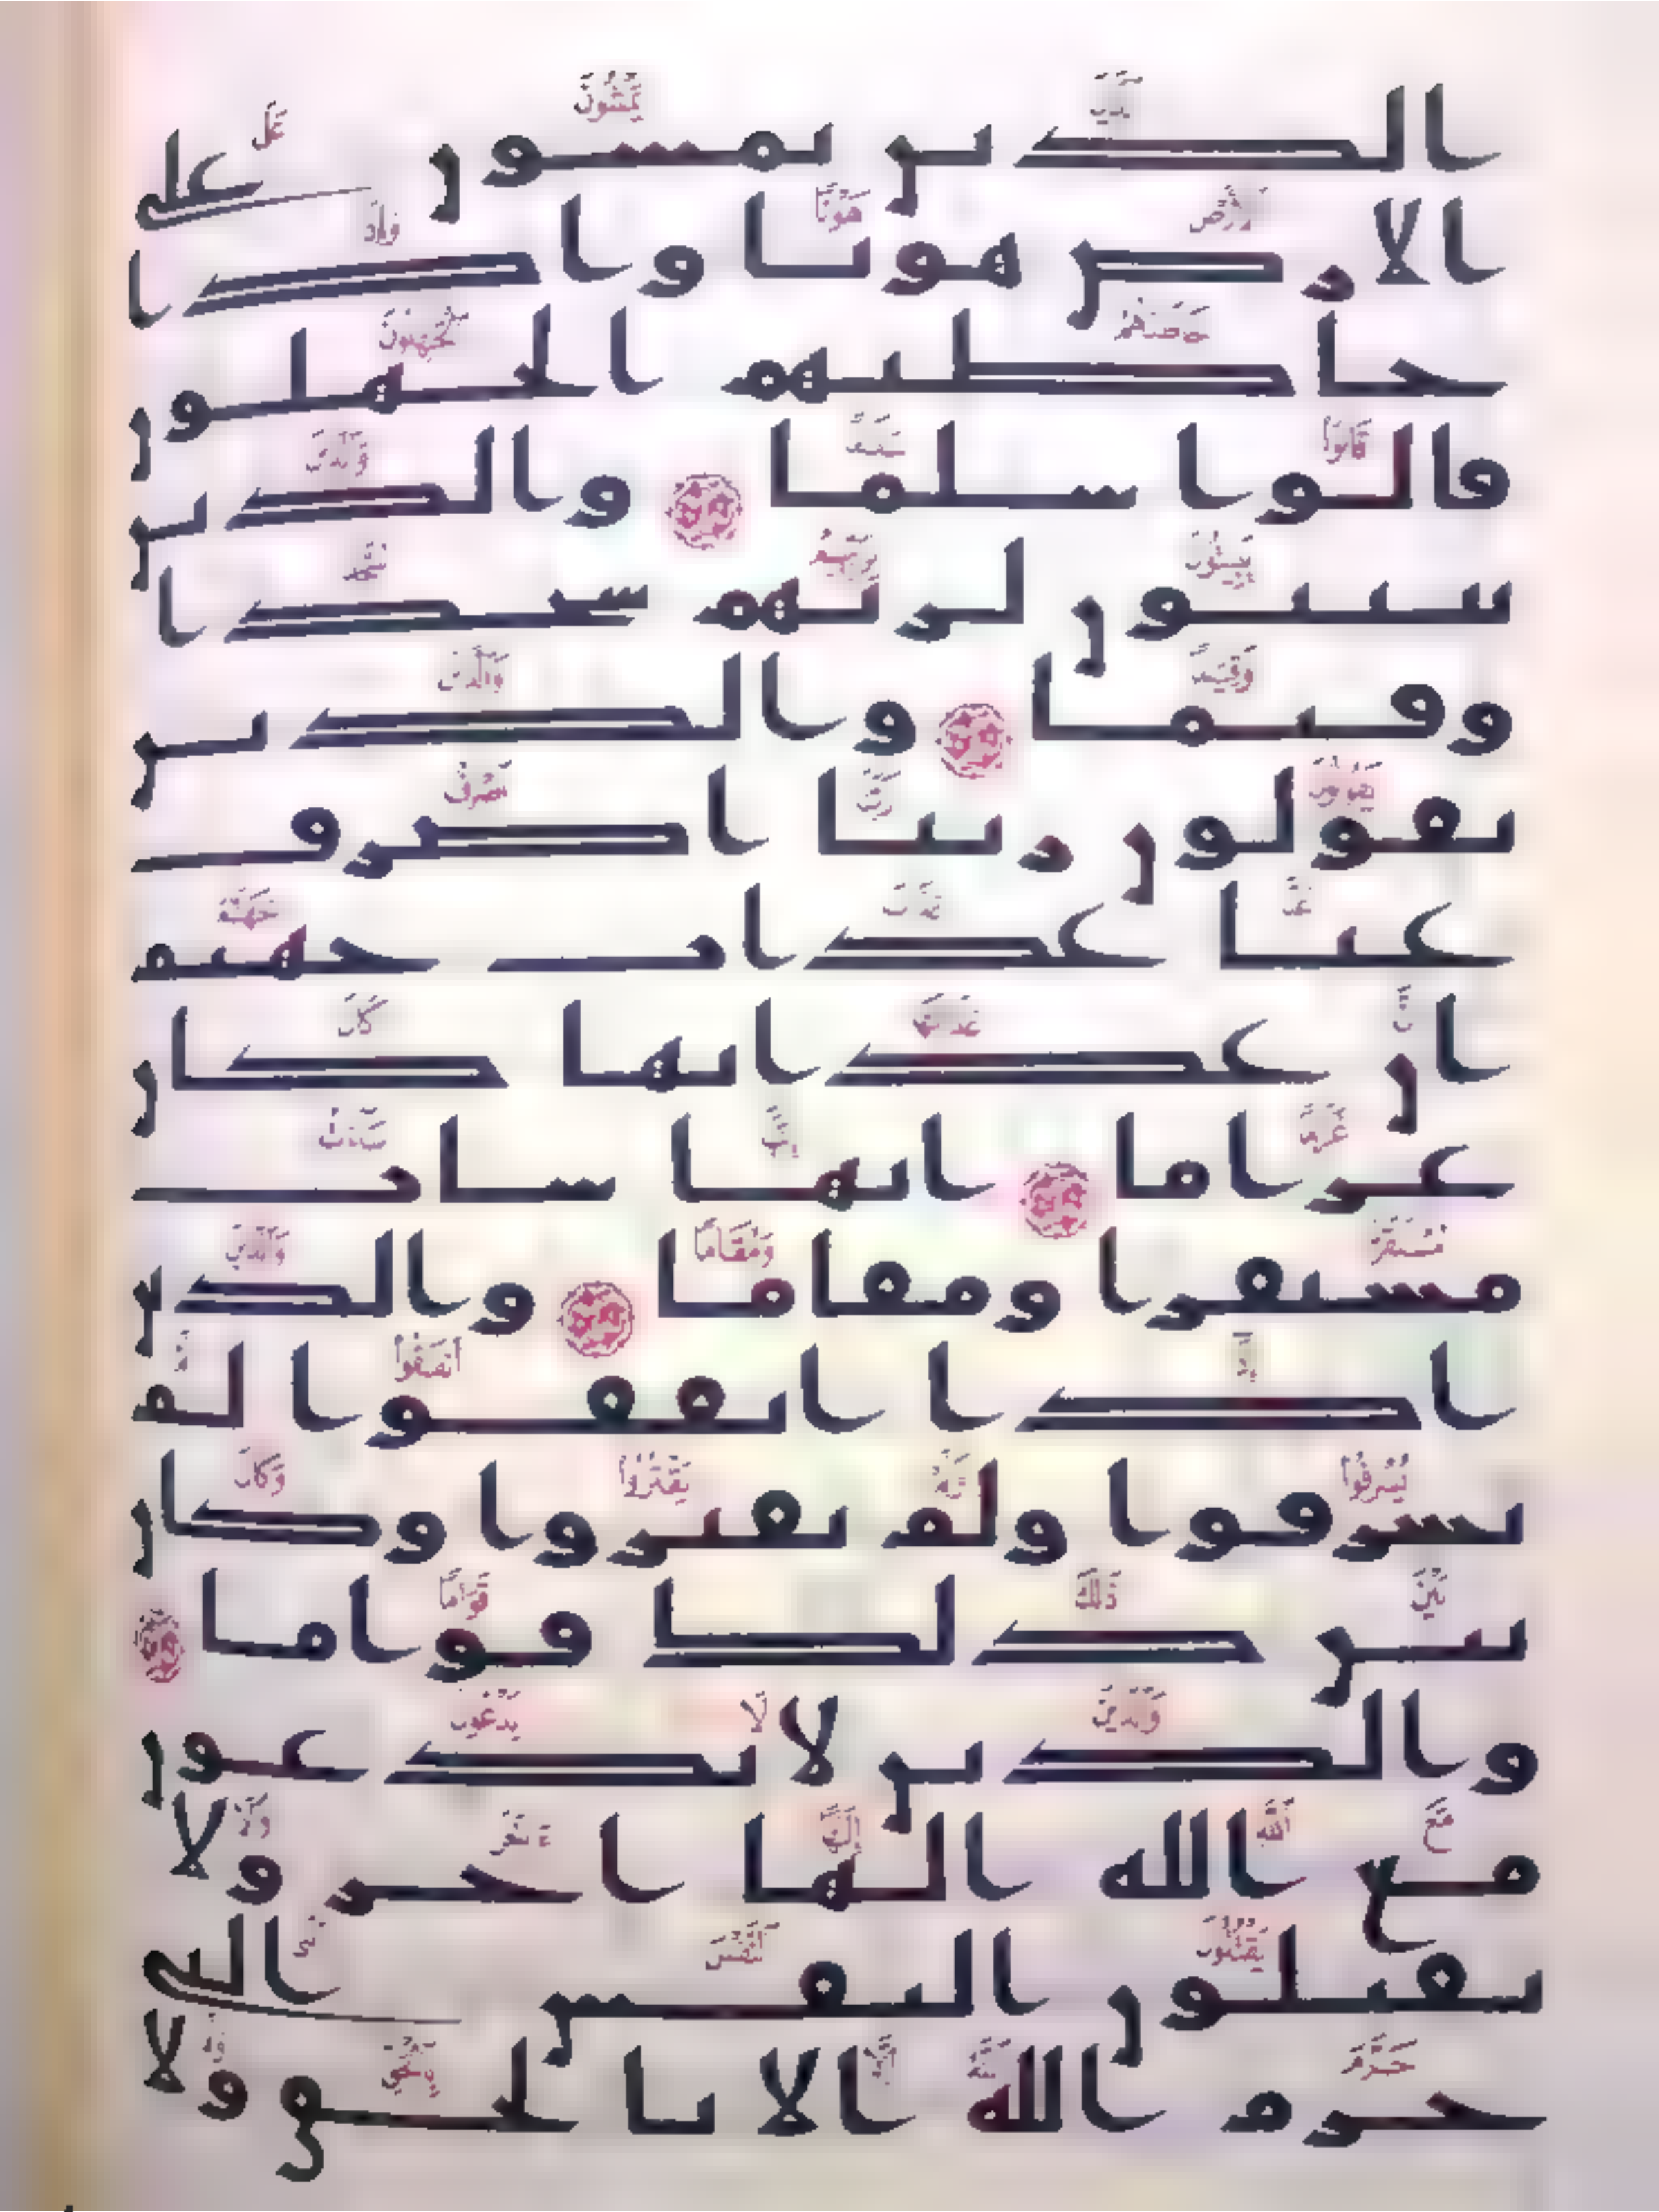 الذين يمشون على
الارض هونا واذا
خاطبهم الجهلون
قالوا سلما والذين
يبيتون لربهم سجدا
وقيما والذين
يقولون ربنا اصرف
عنا عذاب جهنم
ان عذابها كان
غراما انها سات
مستقرا ومقاما والذين
اذا انفقوا لم
يسرفوا ولم يقتروا وكان
بين ذلك قواما
والذين لا يدعون
مع الله الها اخر ولا
يقتلون النفس التي
حرم الله الا بالحق ولا